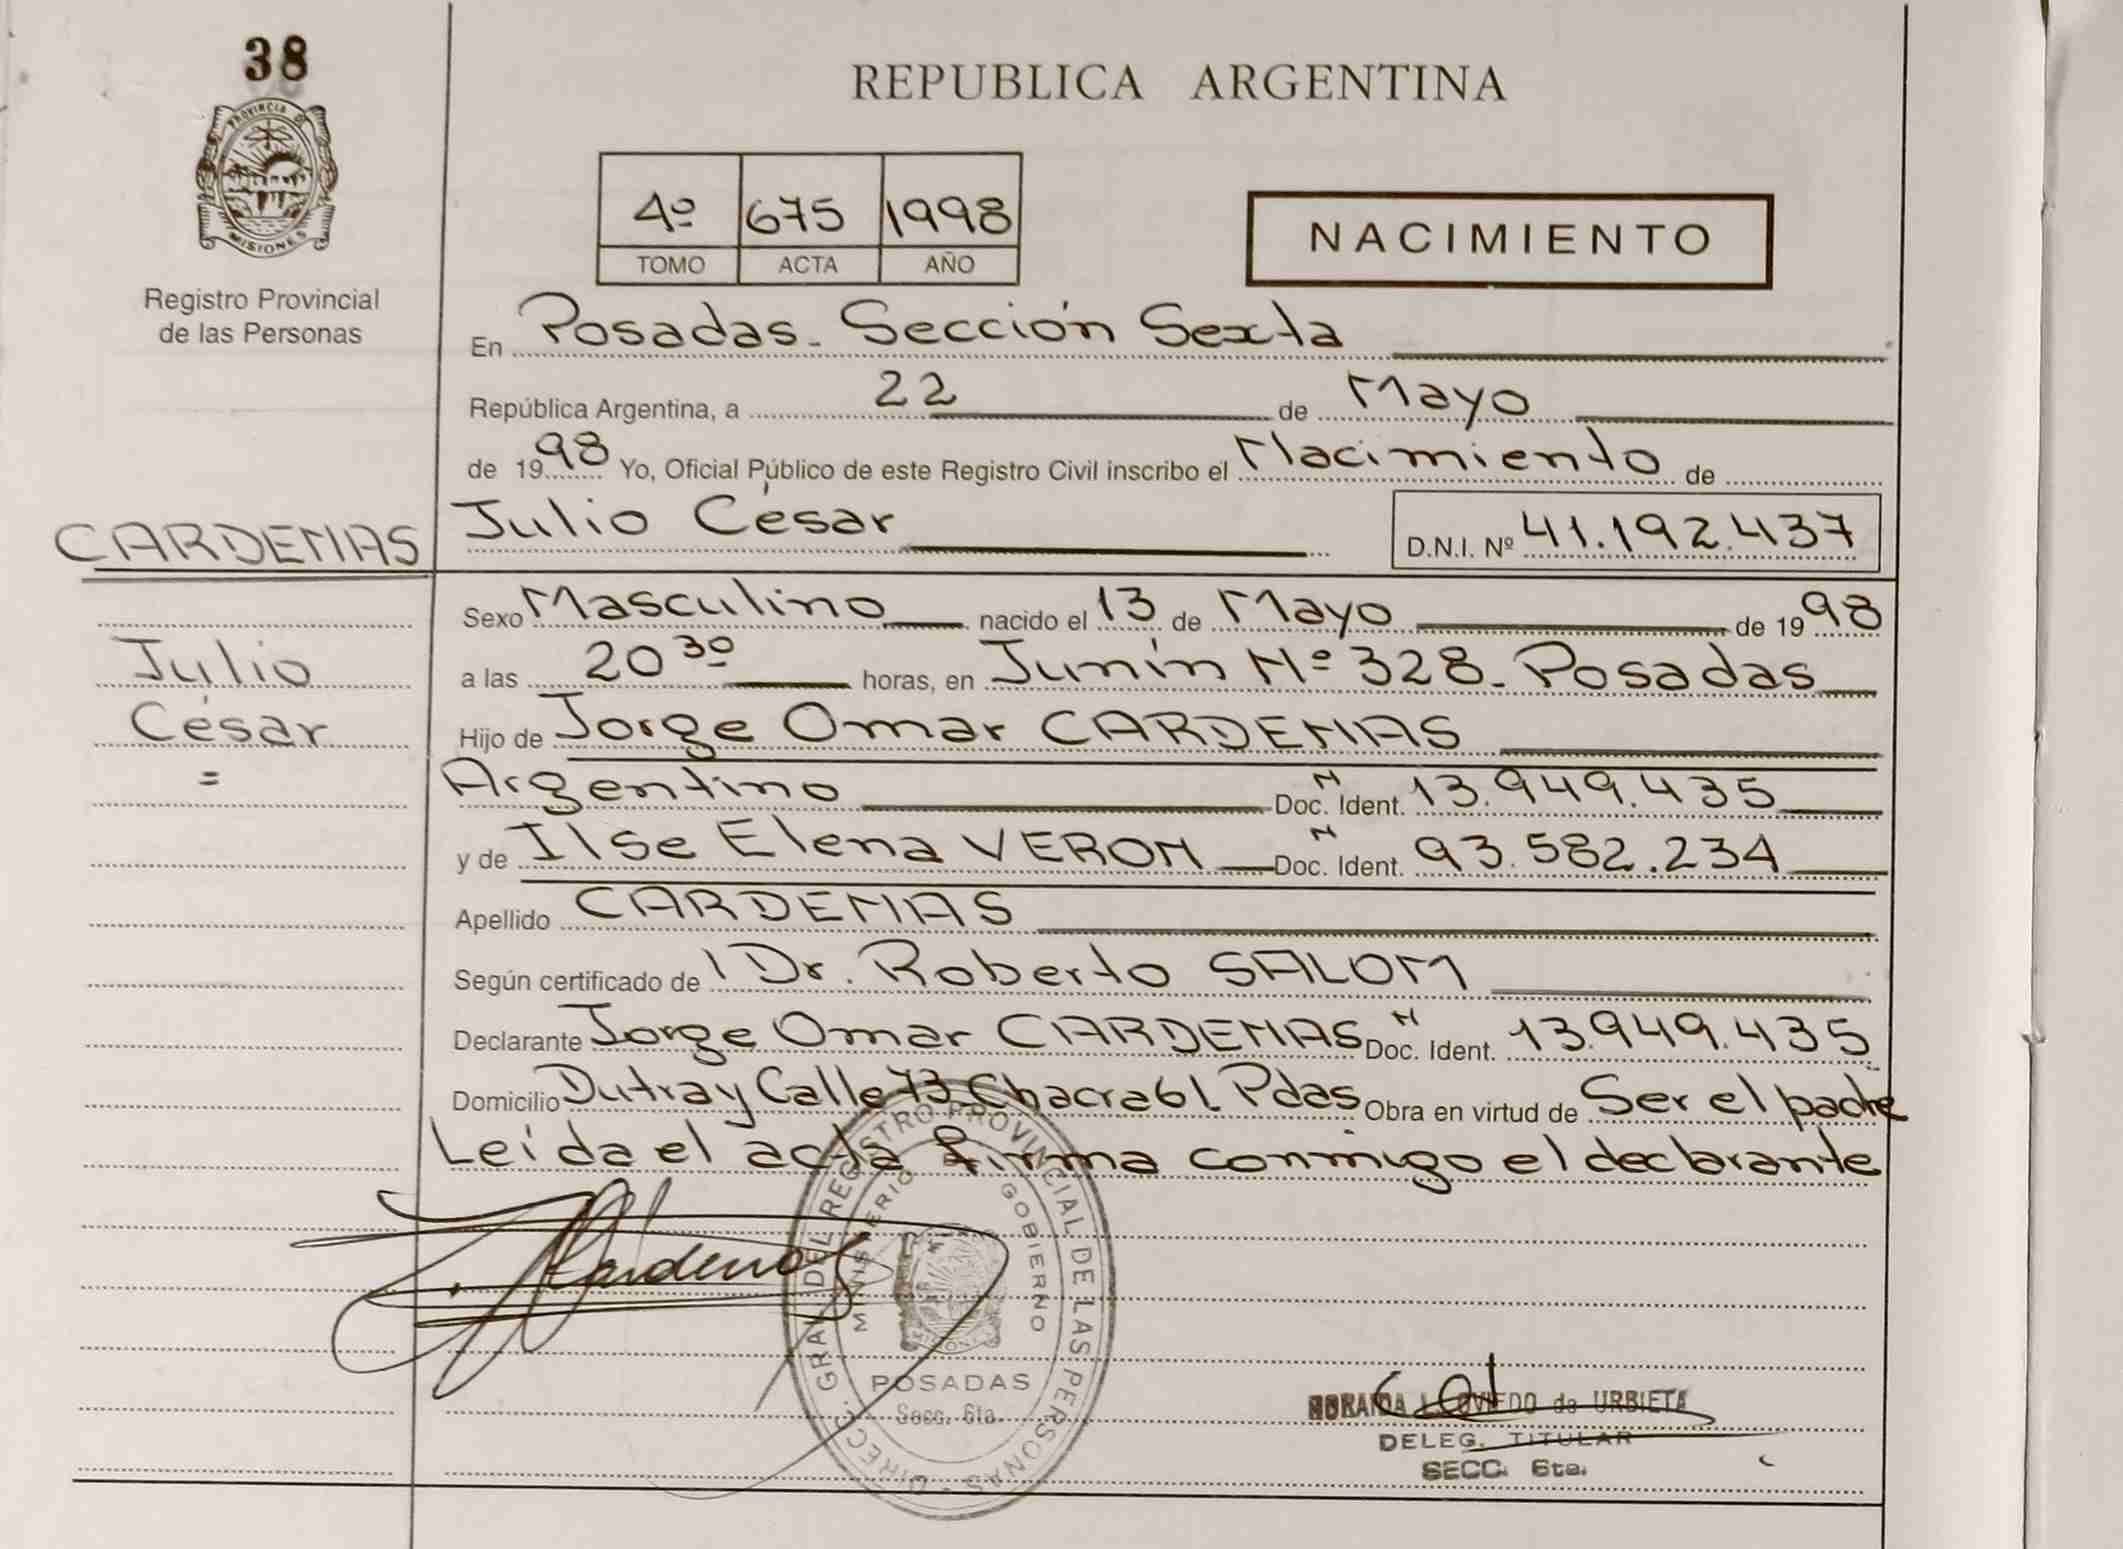 38
PROVINCIA DE
MISIONES
Registro Provincial
de las Personas
REPUBLICA ARGENTINA
4º 675 1998
TOMO ACTA AÑO
NACIMIENTO
En Posadas - Sección Sexta
República Argentina, a 22 de Mayo
de 1998 Yo, Oficial Público de este Registro Civil inscribo el Nacimiento de
CARDENAS
Julio César D.N.I. Nº 41.192.437
Sexo Masculino nacido el 13 de Mayo de 1998
Julio
a las 20 30 horas, en Junín Nº 328 - Posadas
César
Hijo de Jorge Omar CARDENAS
=
Argentino Doc. N Ident. 13.949.435
y de Ilse Elena VERON Doc. N Ident. 93.582.234
Apellido CARDENAS
Según certificado de Dr. Roberto SALOM
Declarante Jorge Omar CARDENAS Doc. N Ident. 13.949.435
Domicilio Dutra y Calle 73 Chacra 61 Pdas Obra en virtud de Ser el padre
Leída el acta firma conmigo el declarante
Cardenas
DIRECC. GRAL. DEL REGISTRO PROVINCIAL DE LAS PERSONAS
MINISTERIO GOBIERNO
POSADAS
Secc. 6ta.
OVIEDO de URBIETA
DELEG. TITULAR
SECC. 6ta.